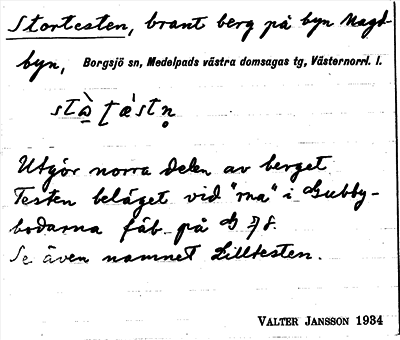 Stortesten, brant berg på byn Nagd-
byn, Borgsjö sn, Medelpads västra domsagas tg, Västernorrl. l.
Utgör norra delen av berget
Testen beläget vid "rna" i Gubby-
bodarna fäb. på
Se även namnet Lilltesten.
VALTER JANSSON 1934